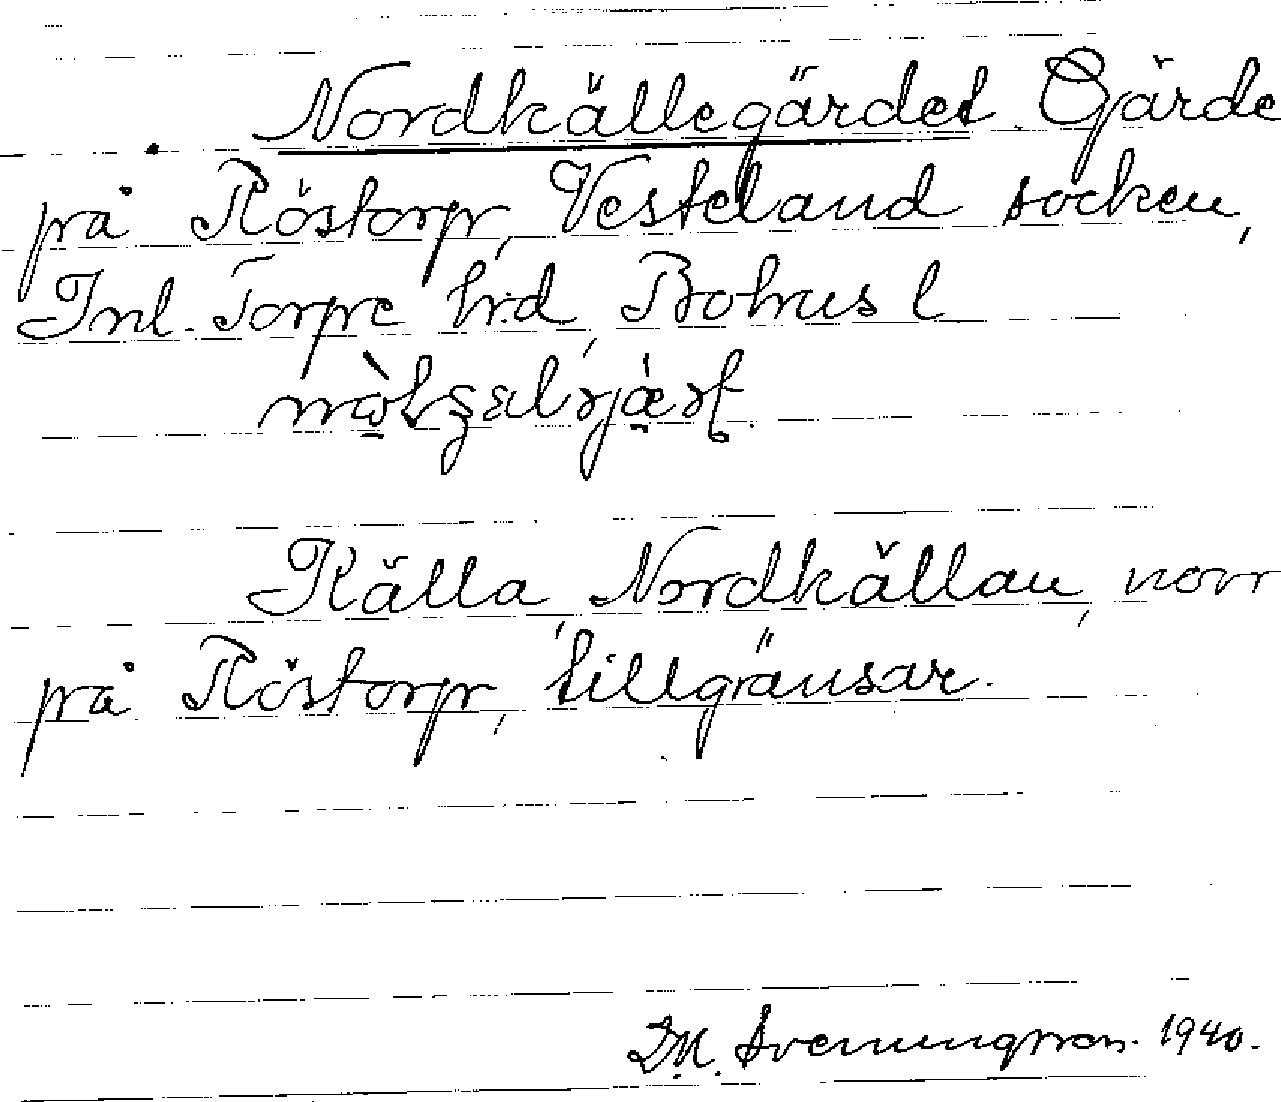 Nordkällegärdet. Gjärde
på Röstorp, Vesteland socken,
Inl. Torpe hrd, Bohusl
Källa, Nordkällan, norr
på Röstorp, tillgränsar.
D.M. Svenungsson. 1940.